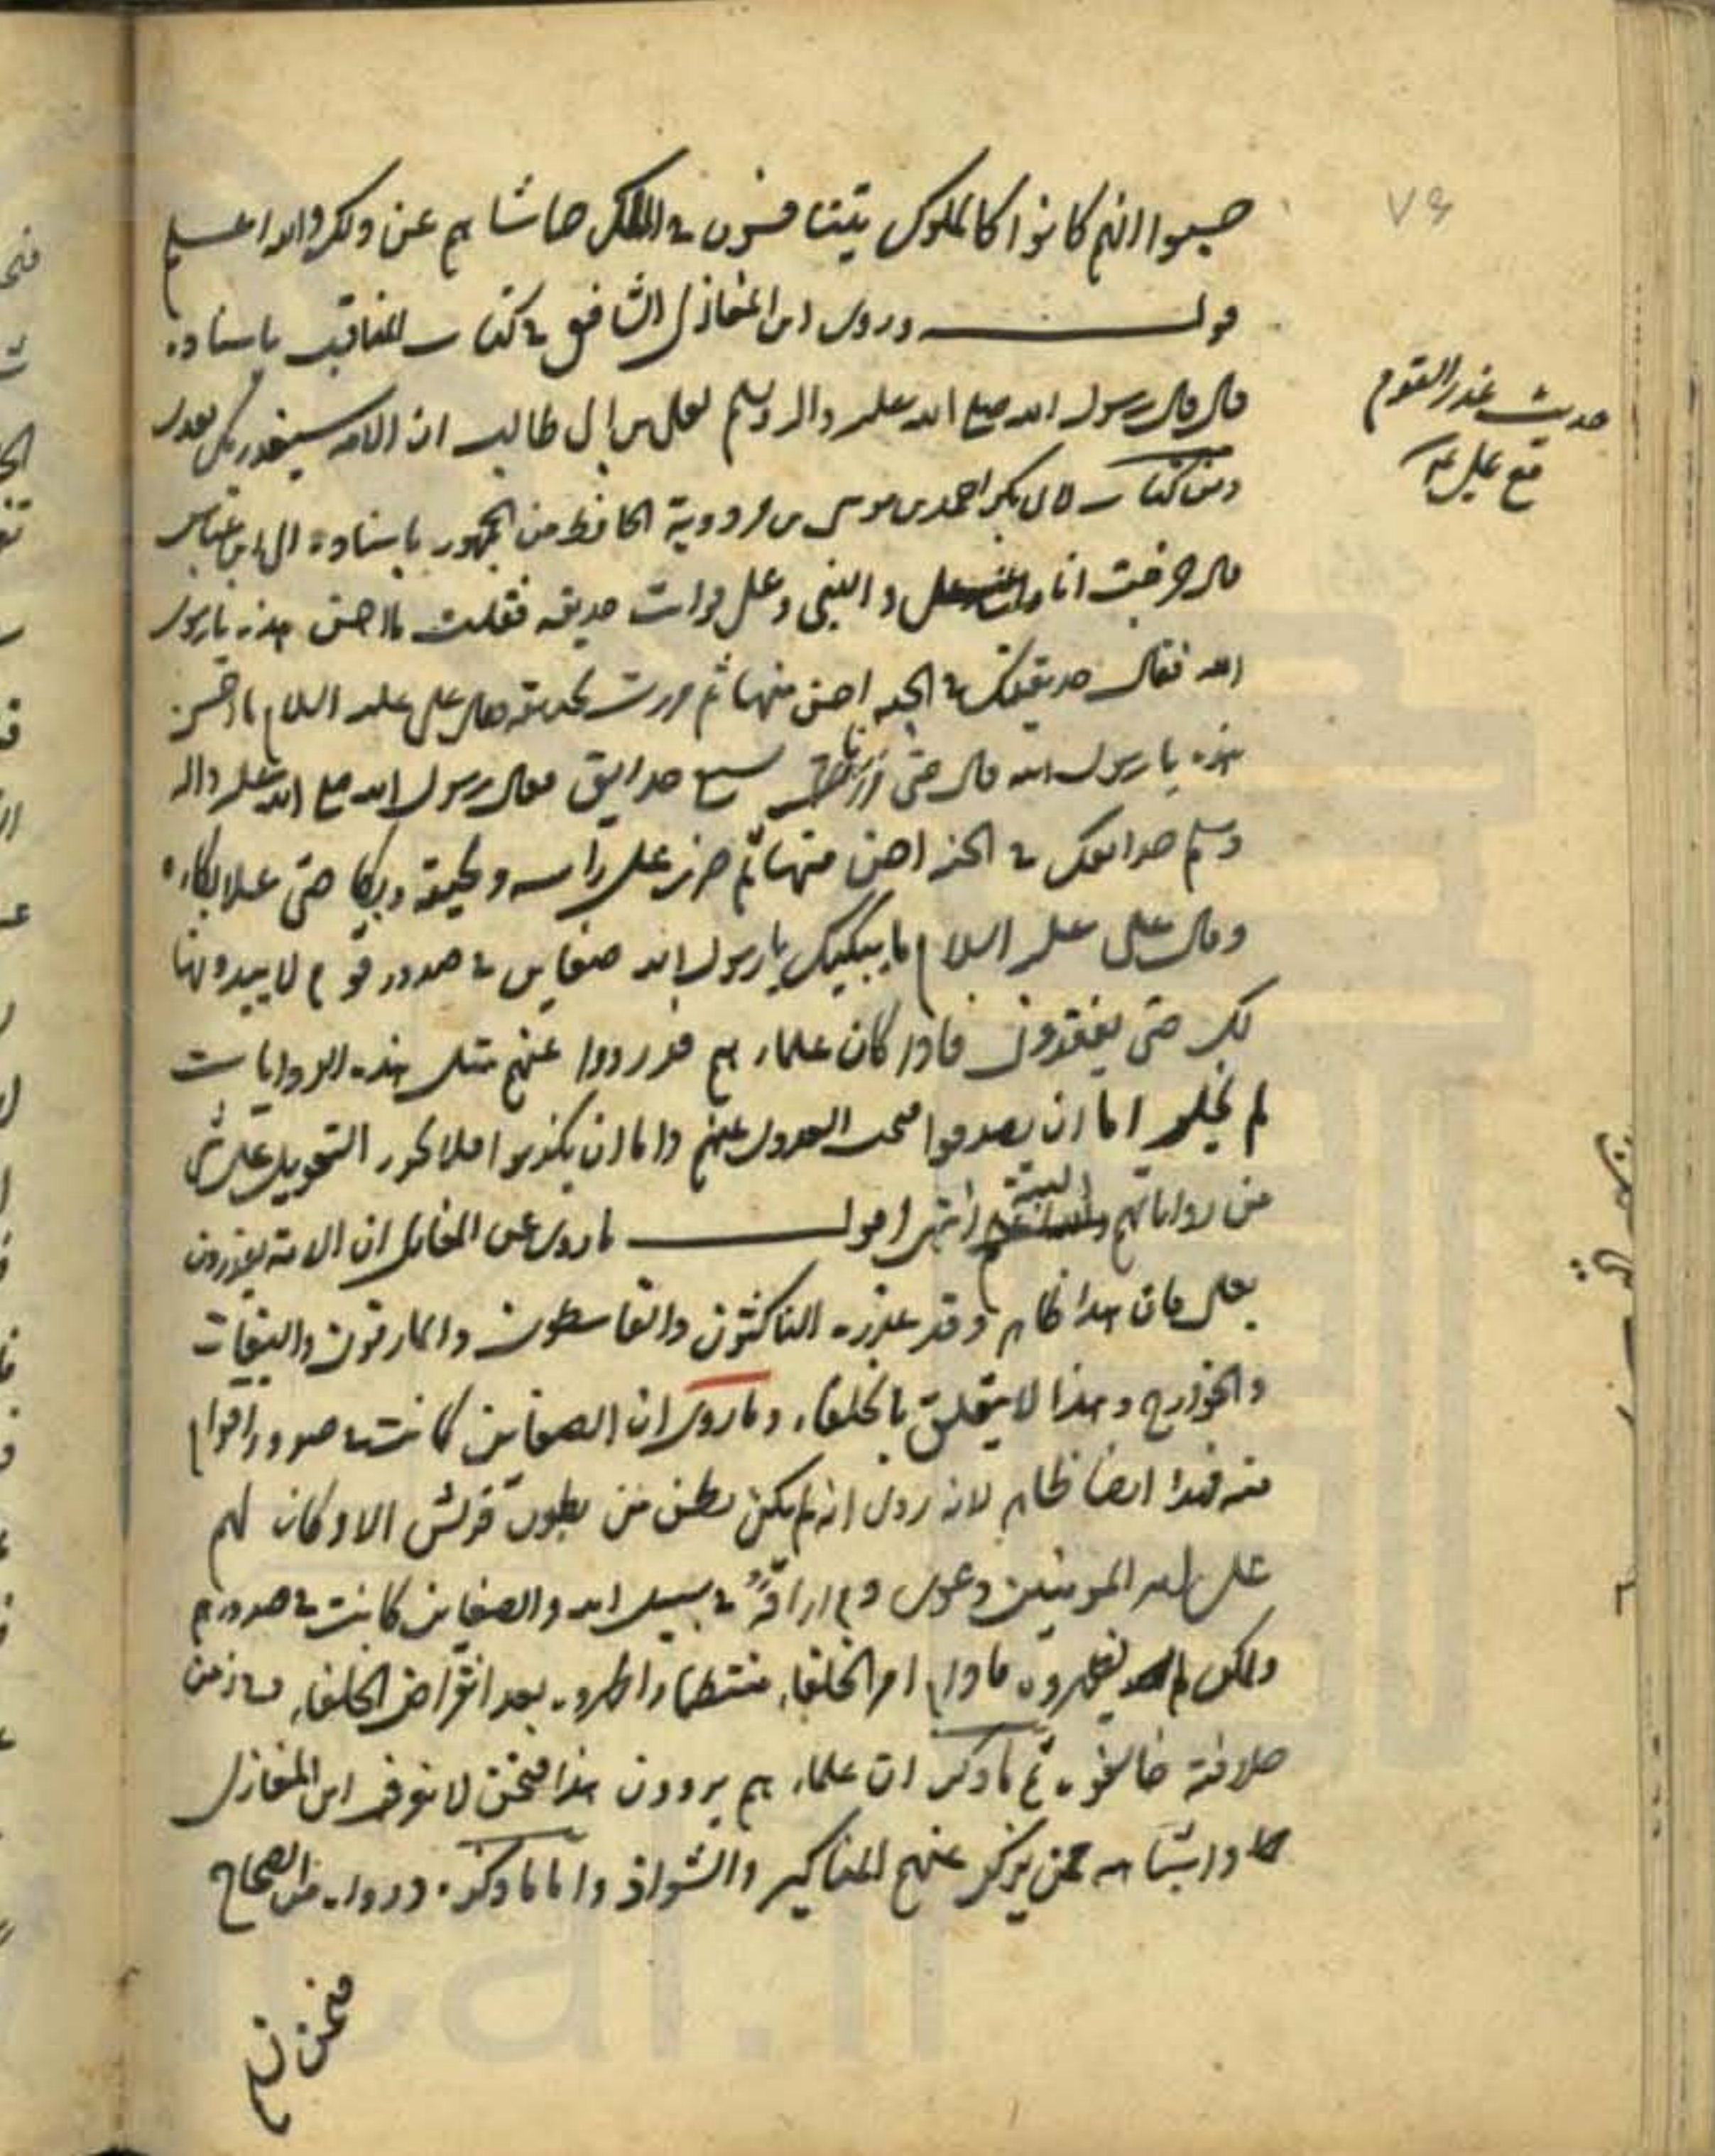 حسبوا انهم كانوا كالملوك يتنافسون في الملك حاشاهم عن ذلك والله اعلم
قوله وروى ابن المغازلي الشافعي في كتاب المناقب باسناده
قال قال رسول الله صلى الله عليه واله وسلم لعلي بن ابي طالب ان الامة ستغدر بك بعدي
ومن كتاب لابي بكر احمد بن موسى بن مردوية الحافظ من الجمهور باسناده الى ابن عباس
قال خرجت انا والنبي وعلي فرأت حديقة فقلت ما احسن هذه يا رسول
الله فقال حديقتك في الجنة احسن منها ثم مررت بحديقة فقال علي عليه السلام ما احسن
هذه يا رسول الله قال حتى مررنا بسبع حدايق فقال رسول الله صلى الله عليه واله
وسلم حدائقك في الجنة احسن منها ثم ضرب على رأسه ولحيته وبكا حتى علا بكاءه
وقال علي عليه السلام ما يبكيك يا رسول الله ضغاين في صدور قوم لا يبدونها
لك حتى يفقدوني فاذا كان علماءهم قد رووا عنهم مثل هذه الروايات
لم يخل اما ان يصدقوا فيجب العدول عنهم واما ان يكذبوا فلا يجوز التعويل على شي
من رواياتهم البتة انتهى اقول ما روى عن المغازلي ان الامة يغدرون
بعلي فان هذا ظاهر وقد غدره الناكثون والقاسطون والمارقون والبغات
والخوارج وهذا لا يتعلق بالخلفاء وما روى ان الضغاين كانت في صدور اقوام
منه فهذا ايضا ظاهر لانه روى انه لم يكن بطن من بطون قريش الا وكان لهم
على امير المومنين دعوى دم اراقه في سبيل الله والضغاين كانت في صدورهم
ولكن لم يظهروه مادام امر الخلفاء منتظما واظهروه بعد انقراض الخلفاء في زمن
خلافته خالفوه ثم ما ذكر ان علماءهم يروون هذا فنحن لا نعرف ابن المغازلي
واشباهه ممن يذكر عنهم المناكير والشواذ واما ما ذكره ورواه من الصحاح
فنحن نسلم
٧٦
حديث غدر القوم
مع علي ع